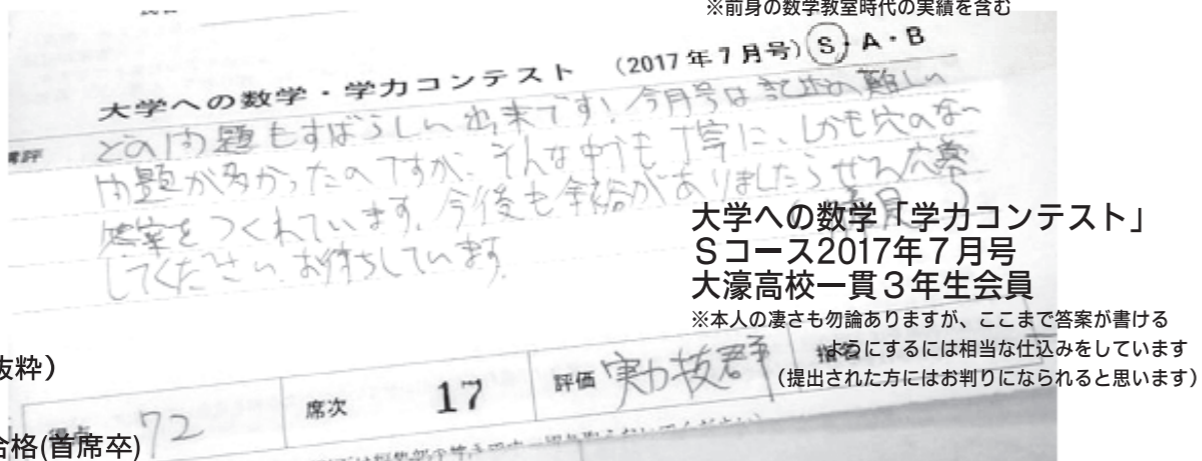 ※前身の数学教室時代の実績を含む
大学への数学・学力コンテスト （2017年7月号）Ｓ・Ａ・Ｂ
講評
どの問題もすばらしい出来です！今月号は記述の難しい
問題が多かったのですが、そんな中でも丁寧に、しかも穴のない
答案をつくれています。今後も余裕がありましたらぜひ応募
してください。お待ちしています。
大学への数学「学力コンテスト」
Ｓコース2017年７月号
大濠高校一貫３年生会員
※本人の凄さも勿論ありますが、ここまで答案が書ける
ようにするには相当な仕込みをしています
（提出された方にはお判りになられると思います）
抜粋）
得点 72 席次 17 評価 実力抜群
合格(首席卒)